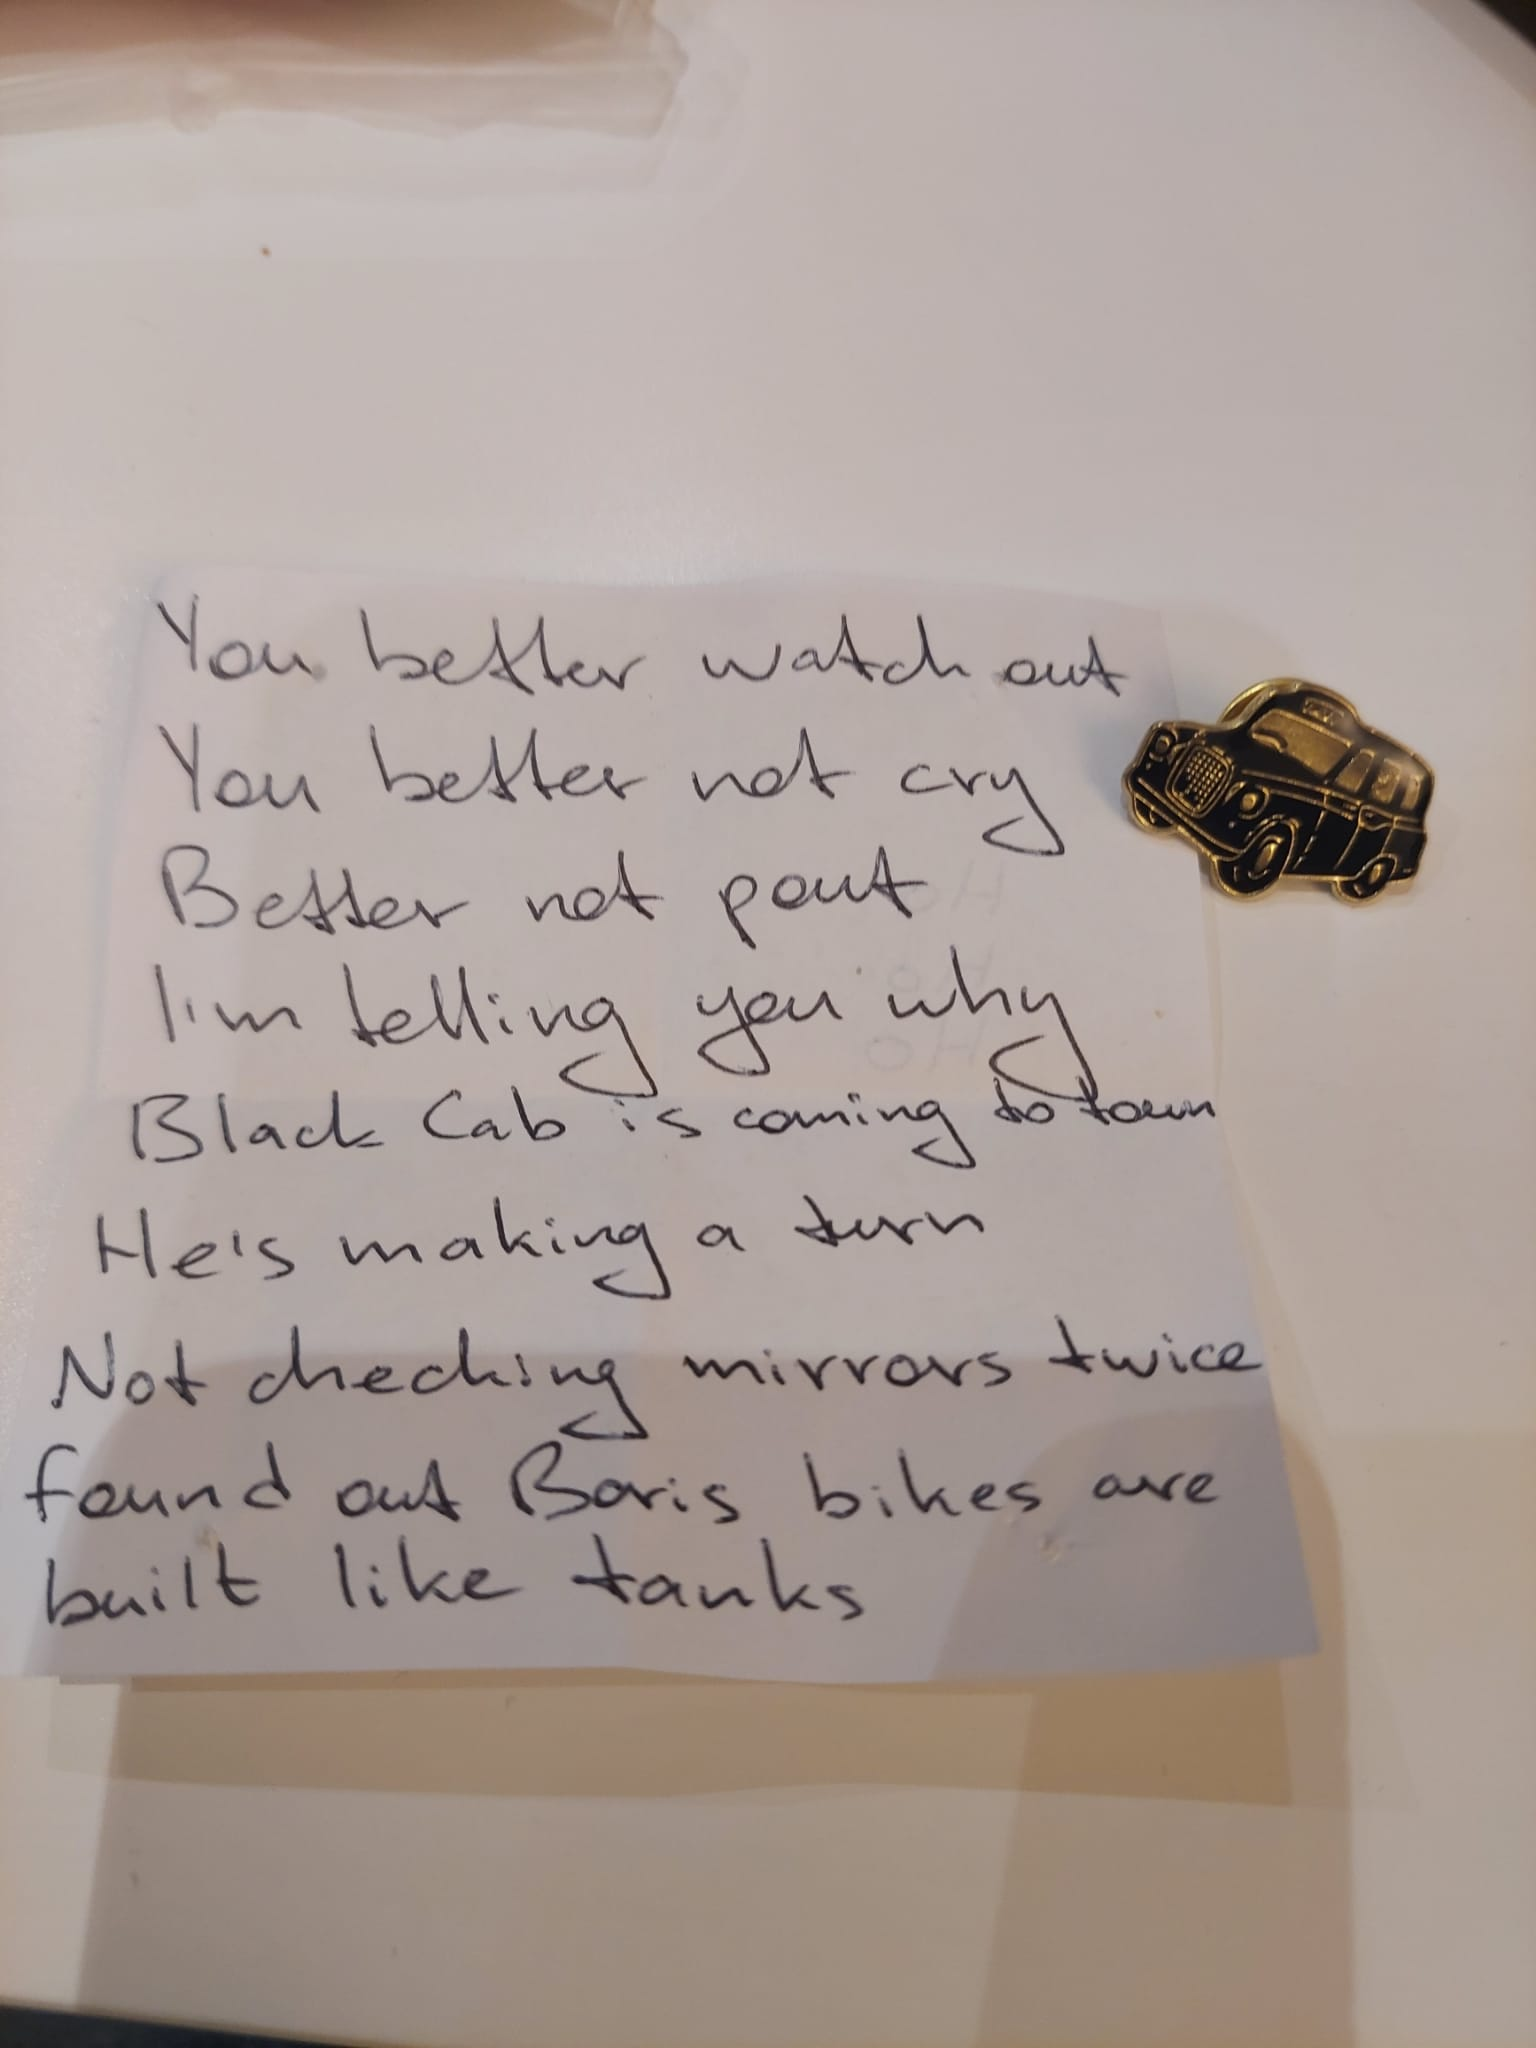 You better watch out
You better not cry
Better not pout
I'm telling you why
Black Cab is coming to town
He's making a turn
Not checking mirrors twice
found out Boris bikes are
built like tanks
Ho
Ho
Ho